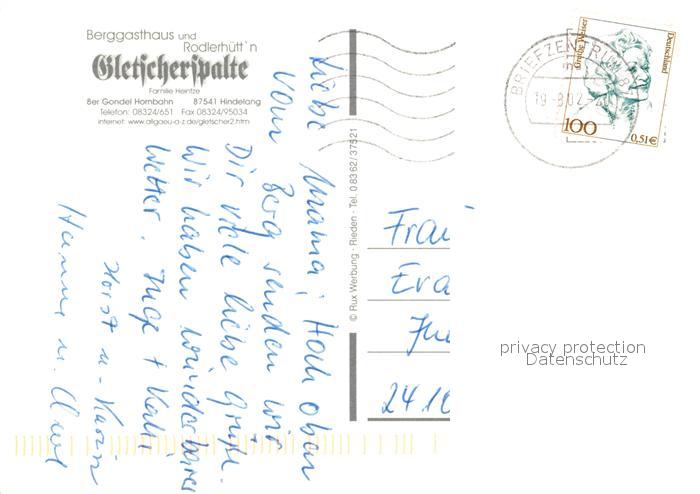 Berggasthaus und
Rodlerhütt´n
Gletscherspalte
Familie Heintze
8er Gondel Hornbahn 87541 Hindelang
Telefon: 08324/651 Fax 08324/95034
internet: www.allgaeu-a-z.de/gletscher2.htm
Liebe Mama, Hoch oben
vom Berg senden wir
Dir viele liebe Grüße.
Wir haben wunderbares
Wetter. Inge +
Horst u. Karin
Hanne u.
© Rux Werbung · Rieden · Tel. 0 83 62 / 37521
BRIEFZENTRUM
19.-8.02
Grethe Weiser
Deutschland
100
0,51€
Frau
Eva
24.10
privacy protection
Datenschutz